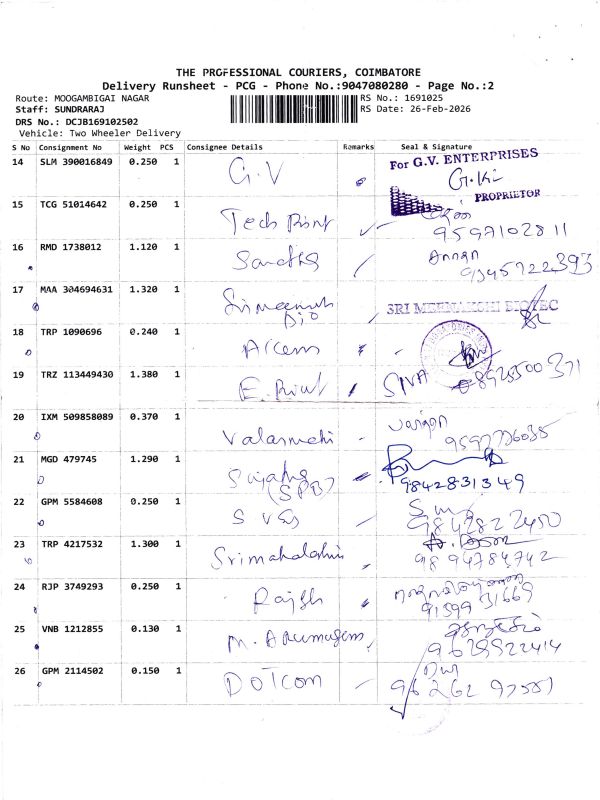 THE PROFESSIONAL COURIERS, COIMBATORE
Delivery Runsheet - PCG - Phone No.:9047080280 - Page No.:2
Route: MOOGAMBIGAI NAGAR RS No.: 1691025
Staff: SUNDRARAJ RS Date: 26-Feb-2026
DRS No.: DCJB169102502
Vehicle: Two Wheeler Delivery
S No Consignment No Weight PCS Consignee Details Remarks Seal & Signature
14 SLM 390016849 0.250 1 G.V For G.V. ENTERPRISES
PROPRIETOR
15 TCG 51014642 0.250 1 Tech Print
9597102811
16 RMD 1738012 1.120 1
17 MAA 304694631 1.320 1 Bio SRI MEENAKSHI BIOTEC
18 TRP 1090696 0.240 1
19 TRZ 113449430 1.380 1 E. Print SIVA 8925500371
20 IXM 509858089 0.370 1
21 MGD 479745 1.290 1 Sujatha
(SPB) 9842831349
22 GPM 5584608 0.250 1
9842822450
23 TRP 4217532 1.300 1 Srimahalakshmi
9894784742
24 RJP 3749293 0.250 1
25 VNB 1212855 0.130 1 M. Arumugam
26 GPM 2114502 0.150 1 DOTCOM